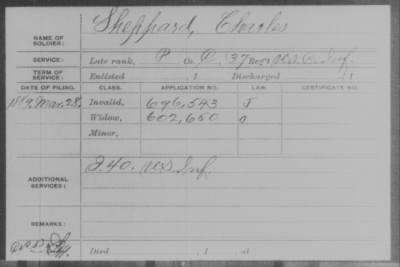 Sheppard, Charles
NAME OF SOLDIER:
SERVICE: Late rank, P Co. D, 37 Reg't U.S.C. Inf.
TERM OF SERVICE: Enlisted , 1 Discharged , 1
DATE OF FILING. CLASS. APPLICATION NO. LAW. CERTIFICATE NO.
Mar. 28, Invalid, 696,543
Widow, 602,650
Minor,
ADDITIONAL SERVICES: I. 40. U.S. Inf.
REMARKS:
Died , 1 , at